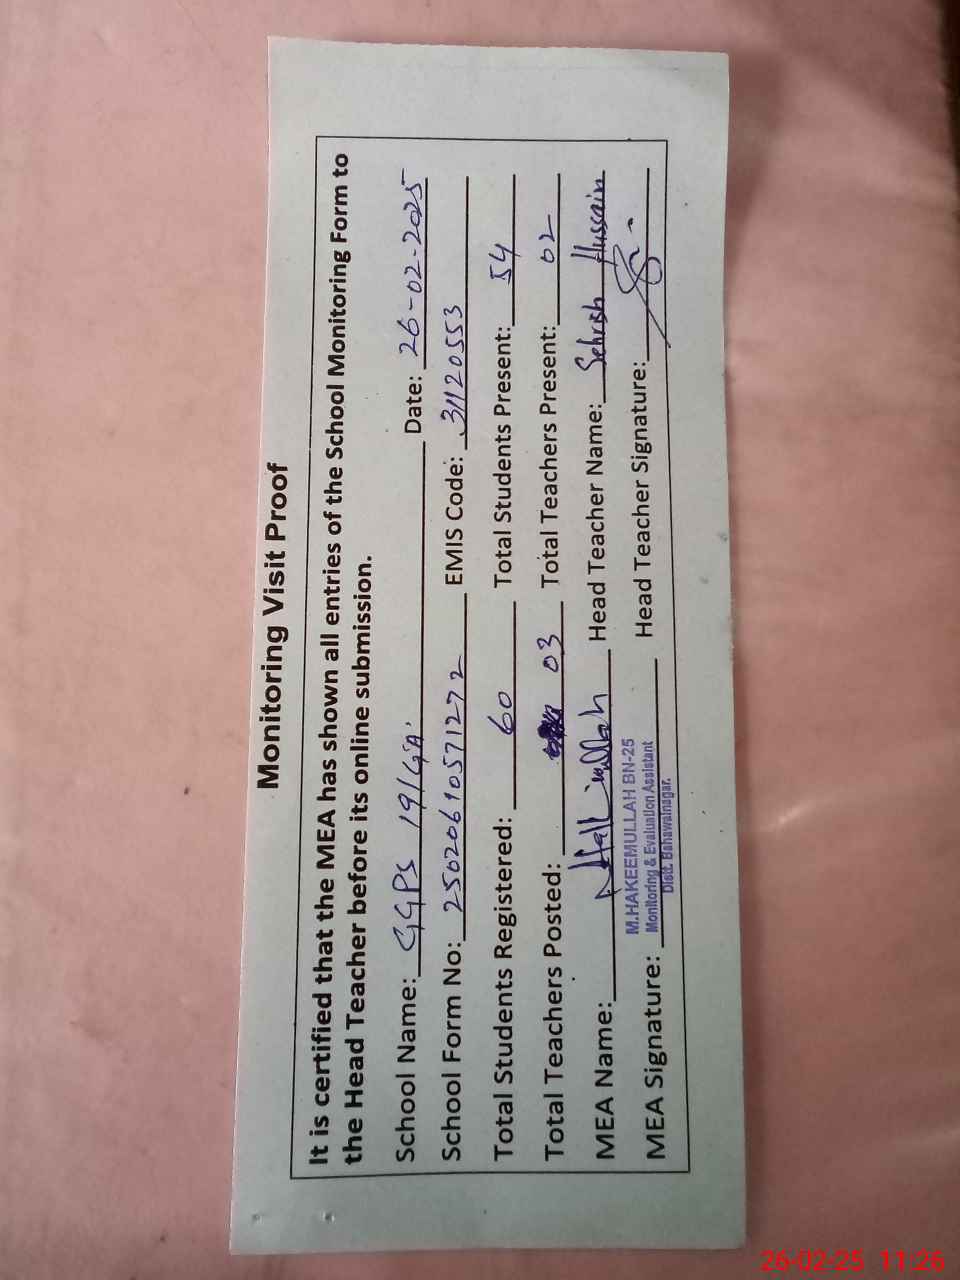 Monitoring Visit Proof
It is certified that the MEA has shown all entries of the School Monitoring Form to
the Head Teacher before its online submission.
School Name: GGPS 19/G'A' Date: 26-02-2025
School Form No: 25020610571272 EMIS Code: 31120553
Total Students Registered: 60 Total Students Present: 54
Total Teachers Posted: 03 Total Teachers Present: 02
MEA Name: Head Teacher Name: Sehrish Hussain
M.HAKEEMULLAH BN-25
Monitoring & Evaluation Assistant
Distt. Bahawalnagar.
MEA Signature: Head Teacher Signature:
26-02-25 11:26